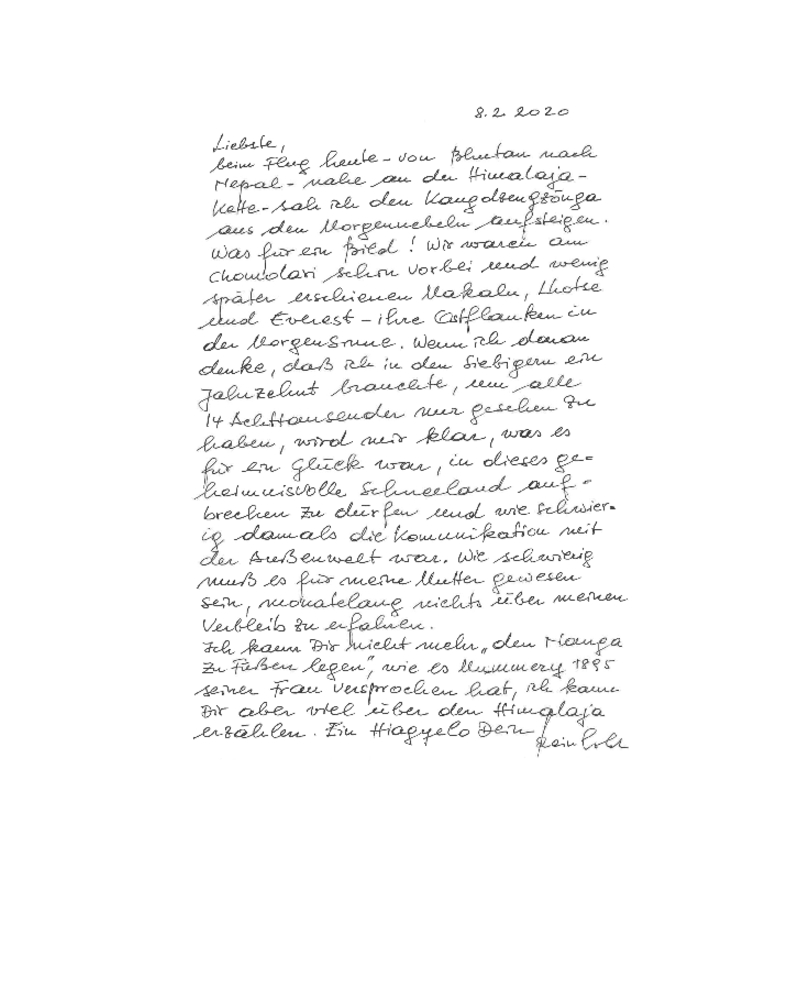 8.2.2020
Liebste,
beim Flug heute - von Bhutan nach
Nepal - nahe an der Himalaja-
Kette - sah ich den Kangdsengzönga
aus den Morgennebeln aufsteigen.
Was für ein Bild! Wir waren am
Chomolari schon vorbei und wenig
später erschienen Makalu, Lhotse
und Everest - ihre Ostflanken in
der Morgensonne. Wenn ich daran
denke, daß ich in den Siebigern ein
Jahrzehnt brauchte, um alle
14 Achttausender nur gesehen zu
haben, wird mir klar, was es
für ein Glück war, in dieses ge-
heimnisvolle Schneeland auf-
brechen zu dürfen und wie schwier-
ig damals die Kommunikation mit
der Außenwelt war. Wie schwierig
muß es für meine Mutter gewesen
sein, monatelang nichts über meinen
Verbleib zu erfahren.
Ich kann Dir nicht mehr „den Nanga
zu Füßen legen", wie es Mummery 1895
seiner Frau versprochen hat, ich kann
Dir aber viel über den Himalaja
erzählen. Ein Hiagyelo Dein
Reinhold